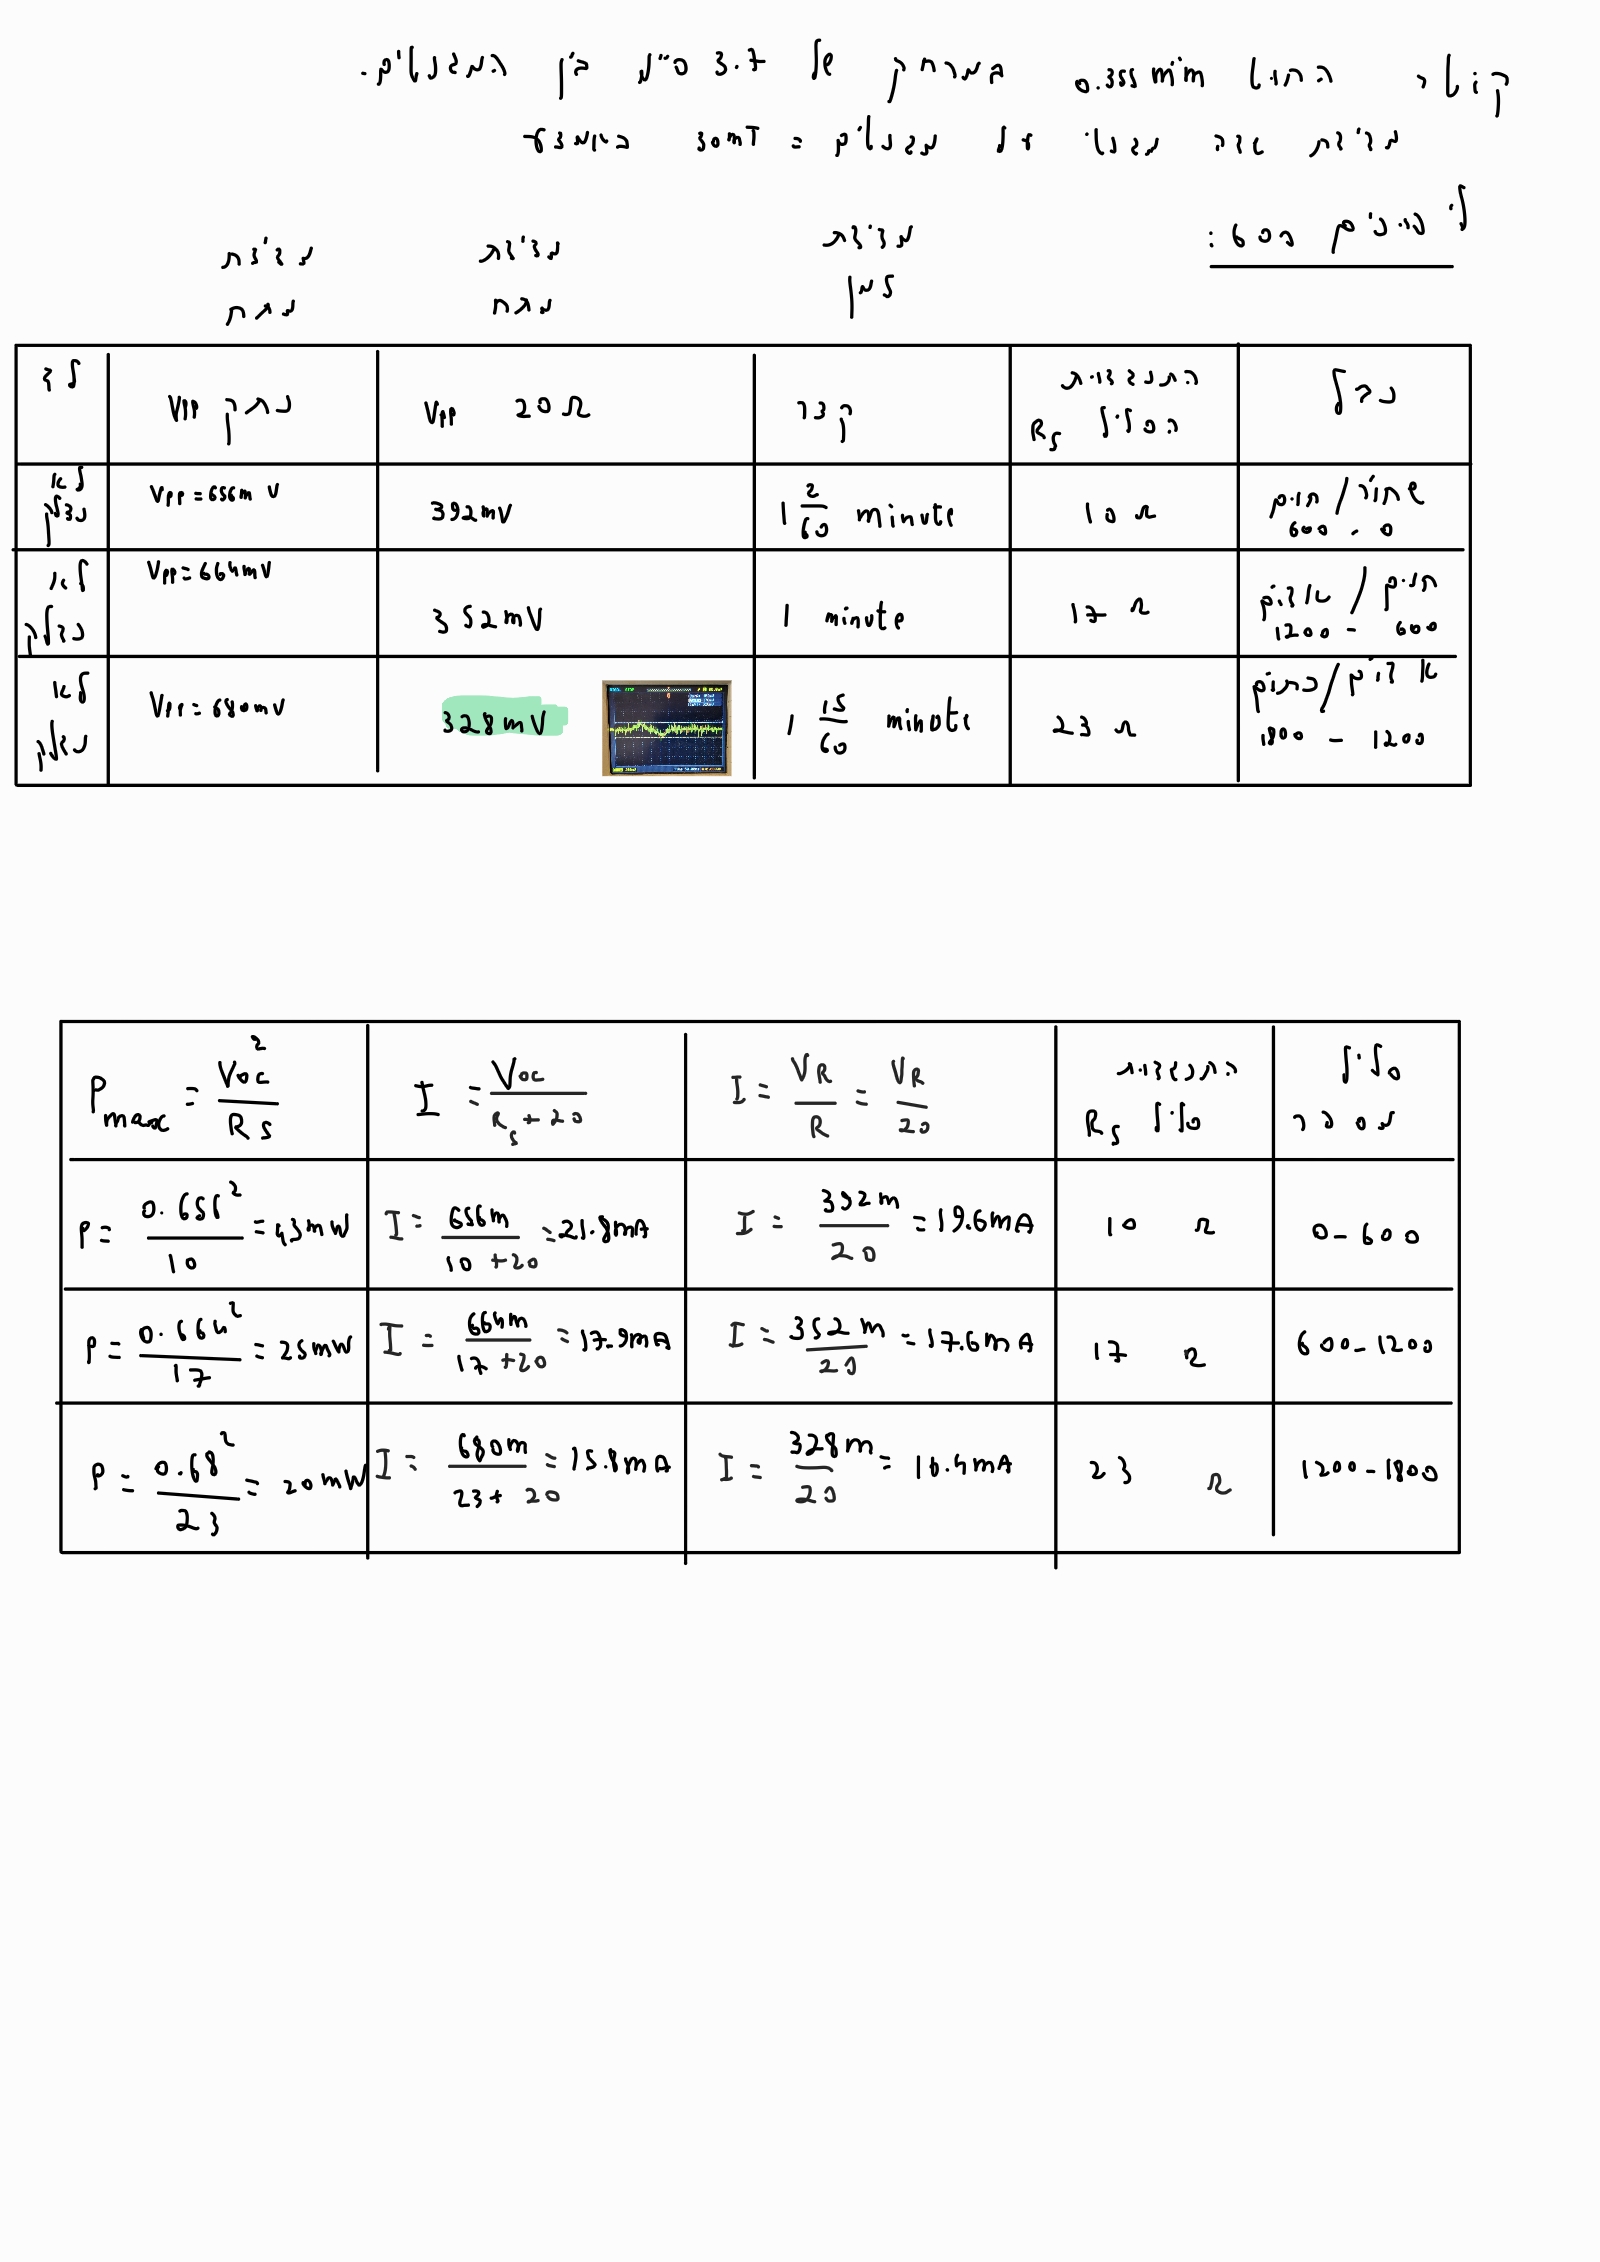 קוטר החוט 0.355 m"m במרחק של 3.7 ס"מ בין המגנטים.
מדידת שדה מגנטי על מגנטים = 30mT באמצע
ליפופים 600:
מדידת זמן
מדידת מתח
מדידת מתח
כבל
התנגדות הסליל Rs
קצר
Vpp 20Ω
נתק Vpp
לד
שחור / חום
600 - 0
10 Ω
1 2/60 minute
392mV
Vpp = 656m V
לא נדלק
חום / אדום
1200 - 600
17 Ω
1 minute
352mV
Vpp = 664mV
לא נדלק
אדום / כתום
1800 - 1200
23 Ω
1 15/60 minute
328mV
Vpp = 680mV
לא נדלק
סליל מספר
התנגדות סליל Rs
I = VR/R = VR/20
I = Voc/(Rs + 20)
Pmax = Voc²/Rs
0-600
10 Ω
I = 392m/20 = 19.6mA
I = 656m/(10+20) = 21.8mA
P = 0.656²/10 = 43mW
600-1200
17 Ω
I = 352m/20 = 17.6mA
I = 664m/(17+20) = 17.9mA
P = 0.664²/17 = 25mW
1200-1800
23 Ω
I = 328m/20 = 16.4mA
I = 680m/(23+20) = 15.8mA
P = 0.68²/23 = 20mW